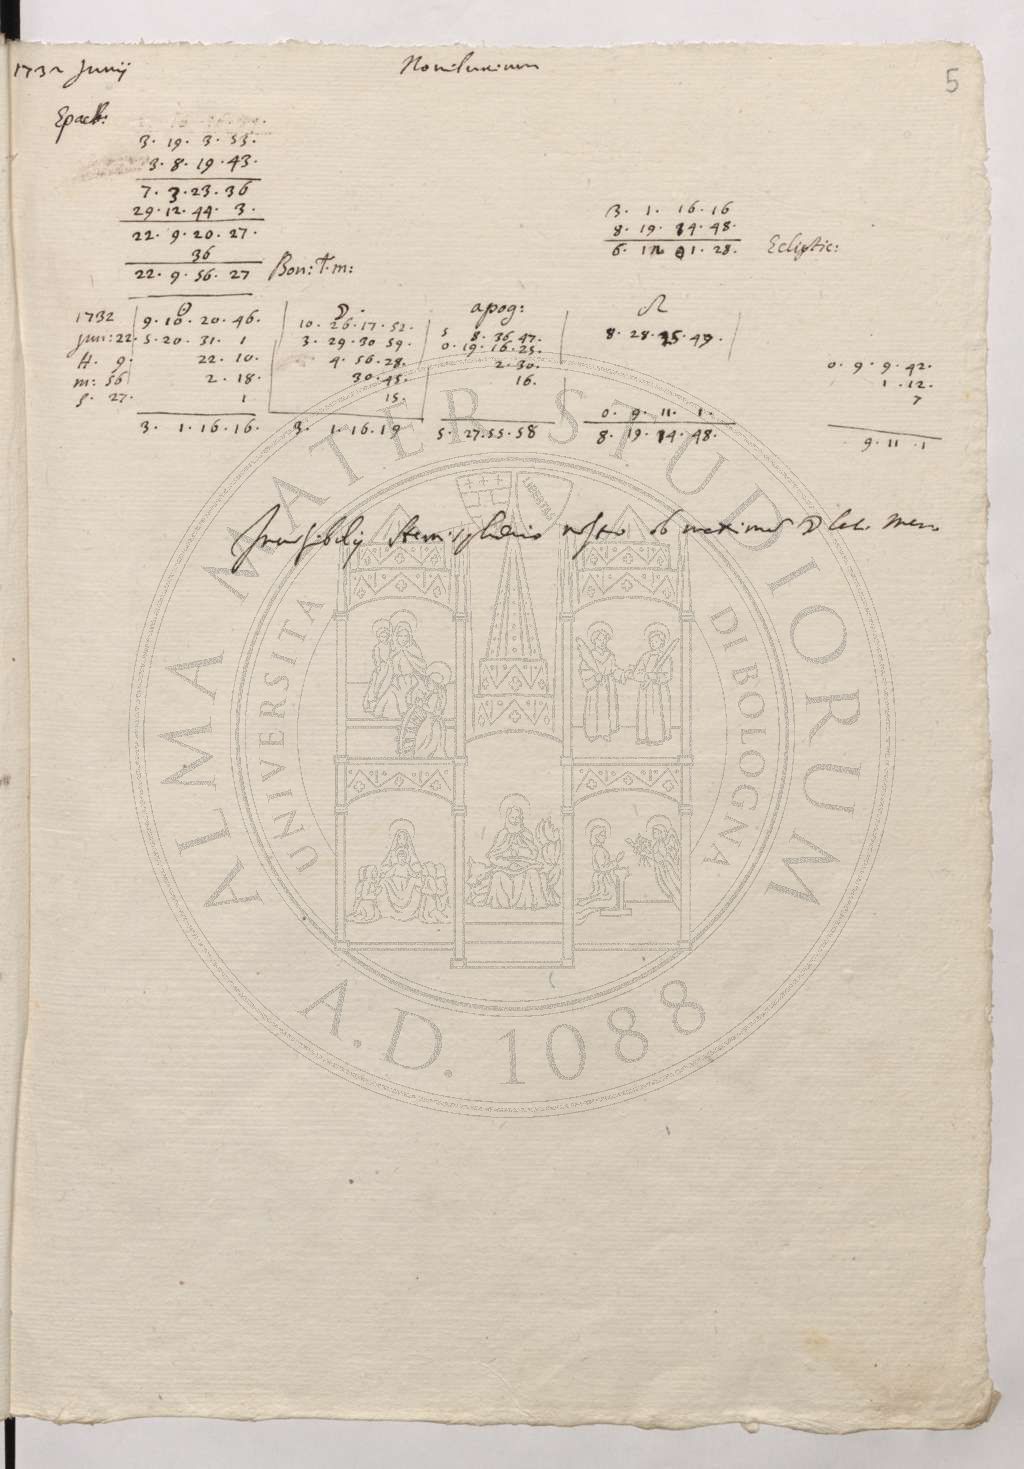 1732 Junij Novilunium
5
Epact:
3. 19. 3. 53.
3. 8. 19. 43.
7. 3. 23. 36
29. 12. 44. 3.
22. 9. 20. 27.
36
22. 9. 56. 27 Bon: T. m:
3. 1. 16. 16
8. 19. 14. 48.
6. 11. 1. 28. Ecliptic:
☉ ☽. apog: ☊
1732 9. 10. 20. 46. 10. 26. 17. 52. 5 8. 36. 47. 8. 28. 25. 49.
Jun: 22. 5. 20. 31. 1 3. 29. 30 59. 0. 19. 16. 25.
H. 9. 22. 10. 4. 56. 28. 2. 30. 0. 9. 9. 42.
m: 56 2. 18. 30. 45. 16. 1. 12.
s. 27. 1 15. 7
0. 9. 11. 1.
3. 1. 16. 16. 3. 1. 16. 19 5. 27. 55. 58 8. 19. 14. 48. 9. 11. 1
Invisibilis Hemispherio nostro ob maximam ☽ lat. mer.
ALMA MATER STUDIORUM
UNIVERSITA DI BOLOGNA
LIBERTAS
A.D. 1088